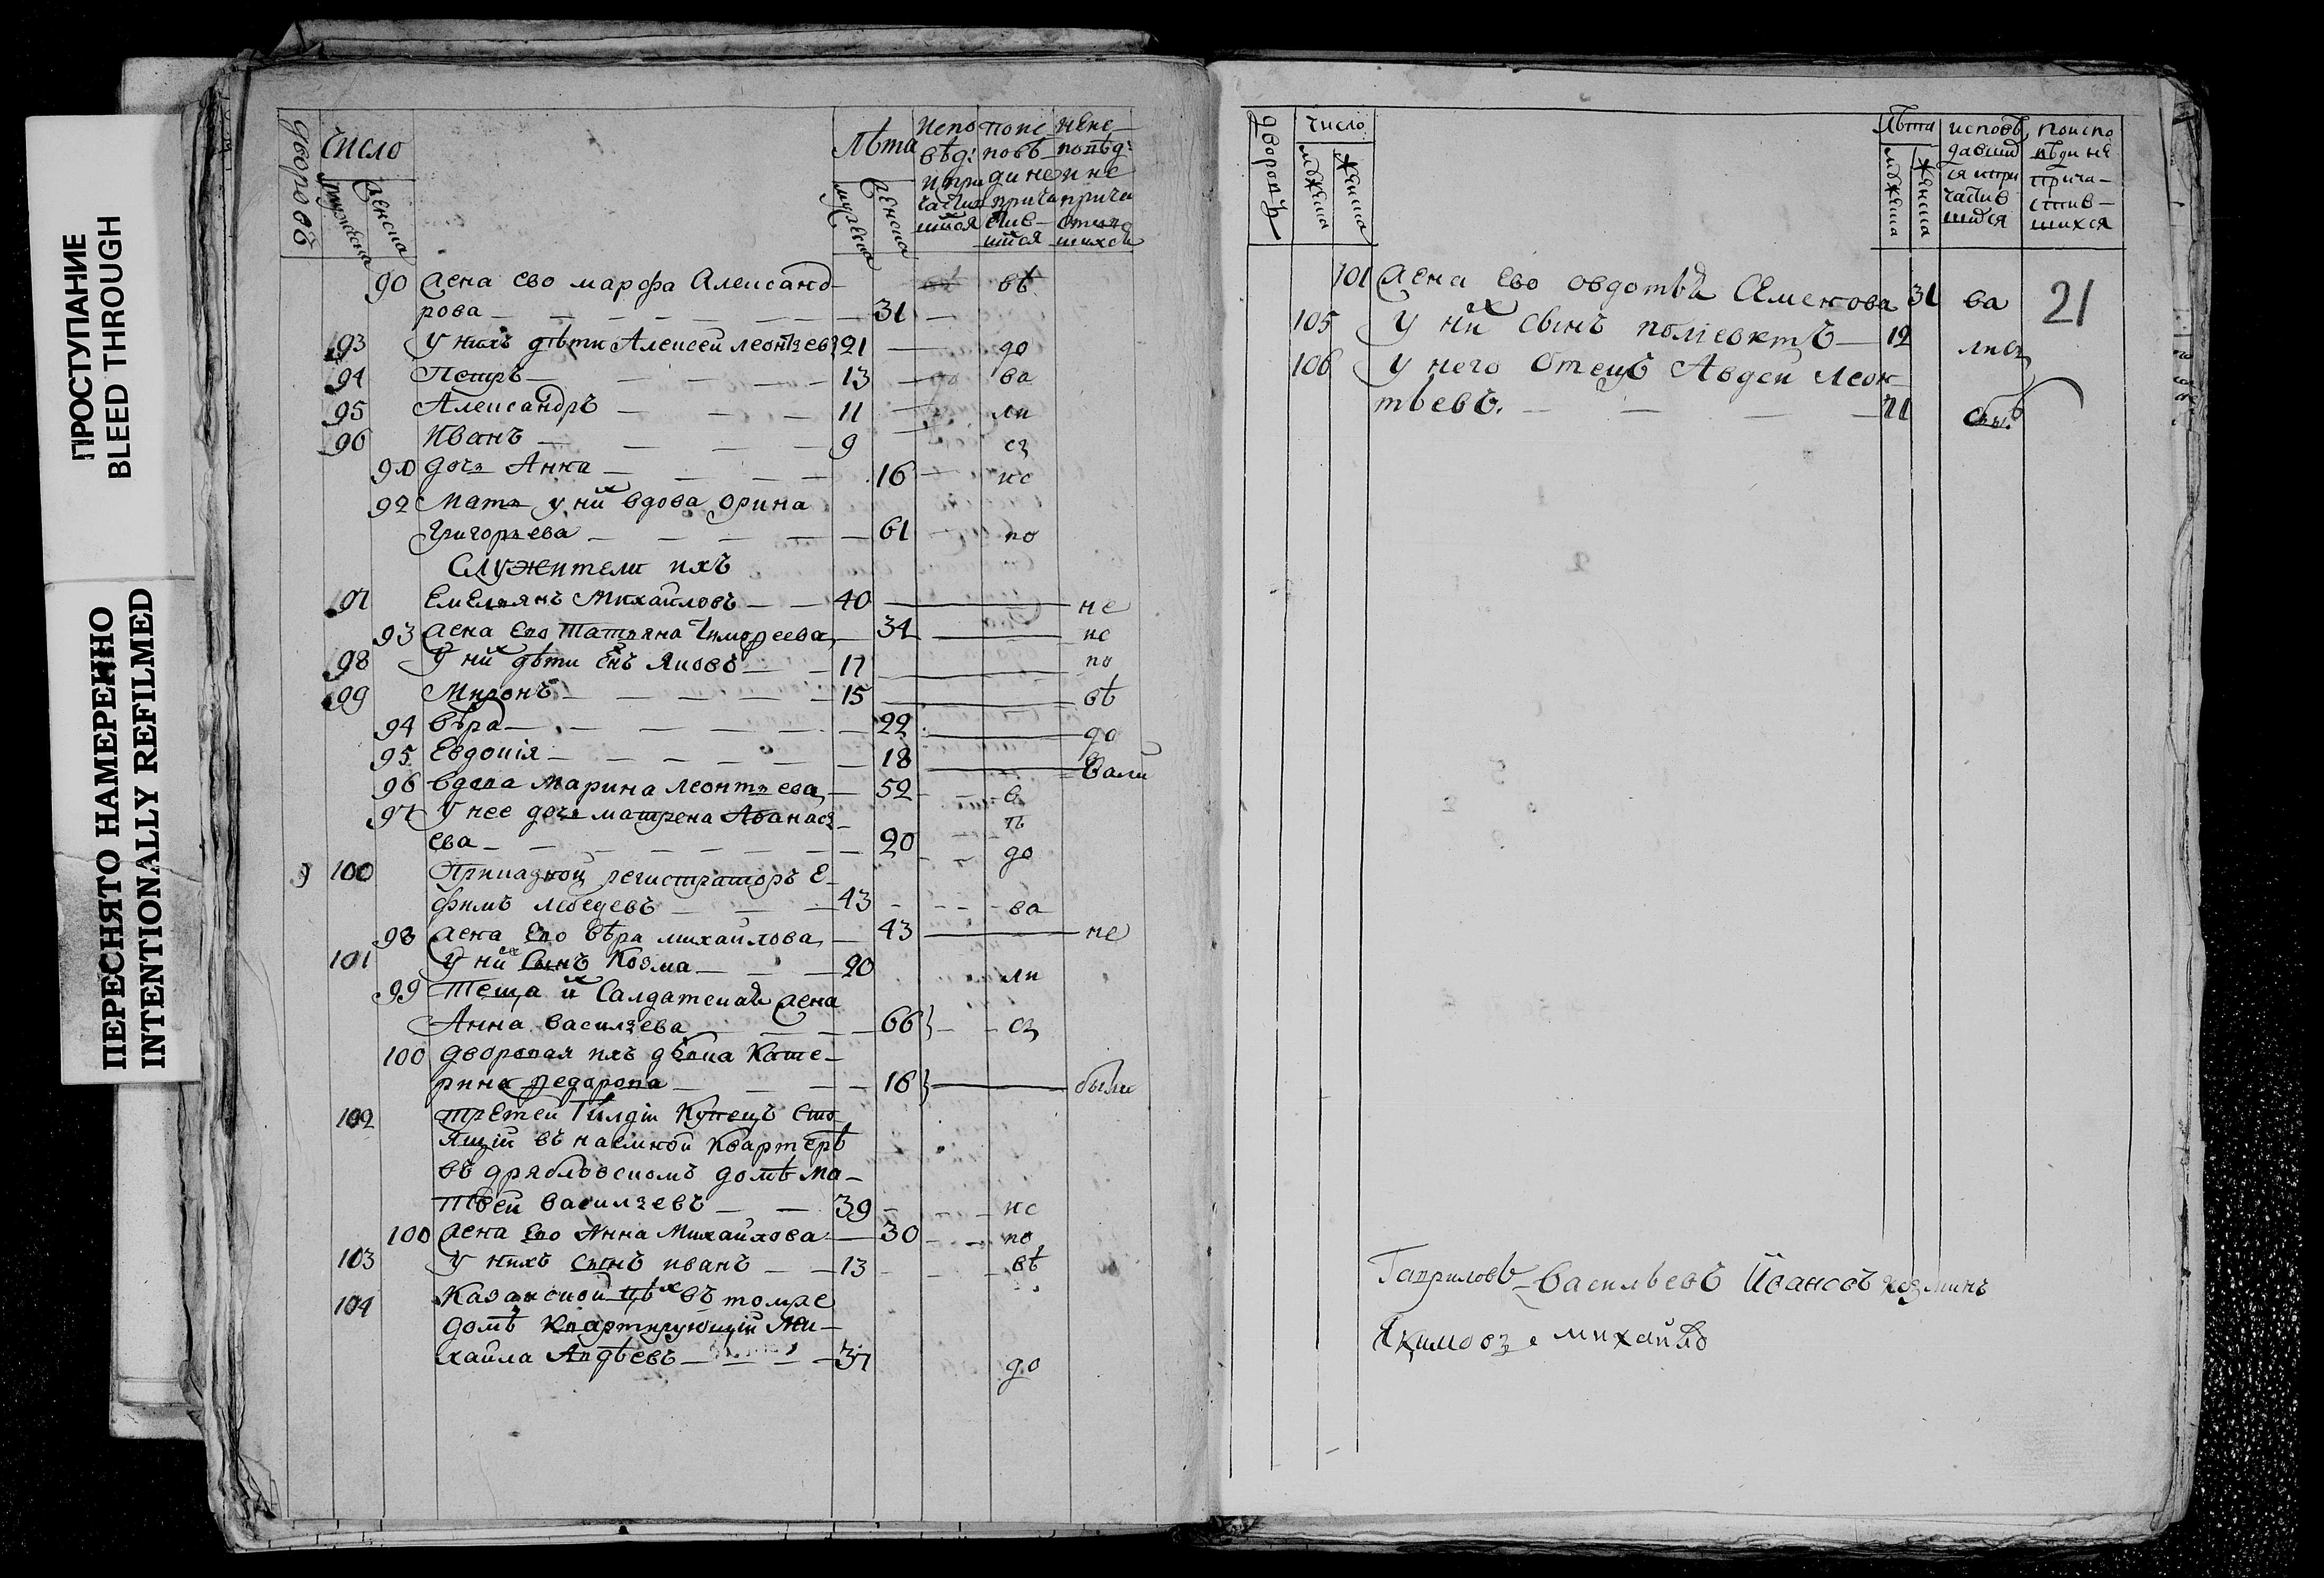 ПРОСТУПАНИЕ
BLEED THROUGH
ПЕРЕСНЯТО НАМЕРЕННО
INTENTIONALLY REFILMED
дворовъ
число
мужеска
женска
Лѣта
мужеска
женска
испо
вѣд:
и при
части
шїися
по ис
повѣ
ди не
прича
стив
шїися
не ис
повѣд:
и не
прича
шихся
90 жена ево марфа Александ
рова 31 вѣ
93 у нихъ дѣти Алексей леонтьевъ 21 до
94 Петръ 13 ва
95 Александръ 11 ли
96 Иванъ 9 сь
91 дочь Анна 16 ис
92 Мать у них вдова орина
Григорьева 61 по
Служители ихъ
97 Емельянъ Михайловъ 40 не
93 жена ево татьяна Тимофеева 34 ис
98 У них дѣти Яковъ 17 по
99 Миронъ 15 вѣ
94 вѣра 22 до
95 Евдокія 18 вали
96 вдова Марина Леонтьева 52 в
97 У нее дочь матрена Аѳанась
ева 20 до
9 100 Приказной регистраторъ Е
фимъ лебедевъ 43 ва
98 жена ево вѣра михайлова 43 не
101 У них сынъ Козма 20 ли
99 Теща их Салдатская жена
Анна васильева 66 сь
100 дворовая ихъ дѣвка Кате
рина федорова 16 были
102 третей Гилдїи Купецъ сто
ящїй въ наемной квартерѣ
въ дрябловскомъ домѣ ма
твей васильевъ 39 ис
100 жена ево Анна Михайлова 30 по
103 у нихъ сынъ иванъ 13 вѣ
104 Казанской цѣх въ томже
домѣ квартирующїй Ми
хайла Авдѣевъ 37 до
дворовъ
число
мужеска
женска
Лѣта
мужеска
женска
исповѣ
давши
ся и при
частив
шїися
по испо
вѣди не
прича
стив
шихся
101 Жена ево овдотья Семенова 31 ва 21
105 У них сынъ полїевктъ 12 лись
106 У него отецъ Авдей Леон
тьевъ. 71
Гавриловъ Васильевъ Ивановъ козминъ
Якимовъ михайло